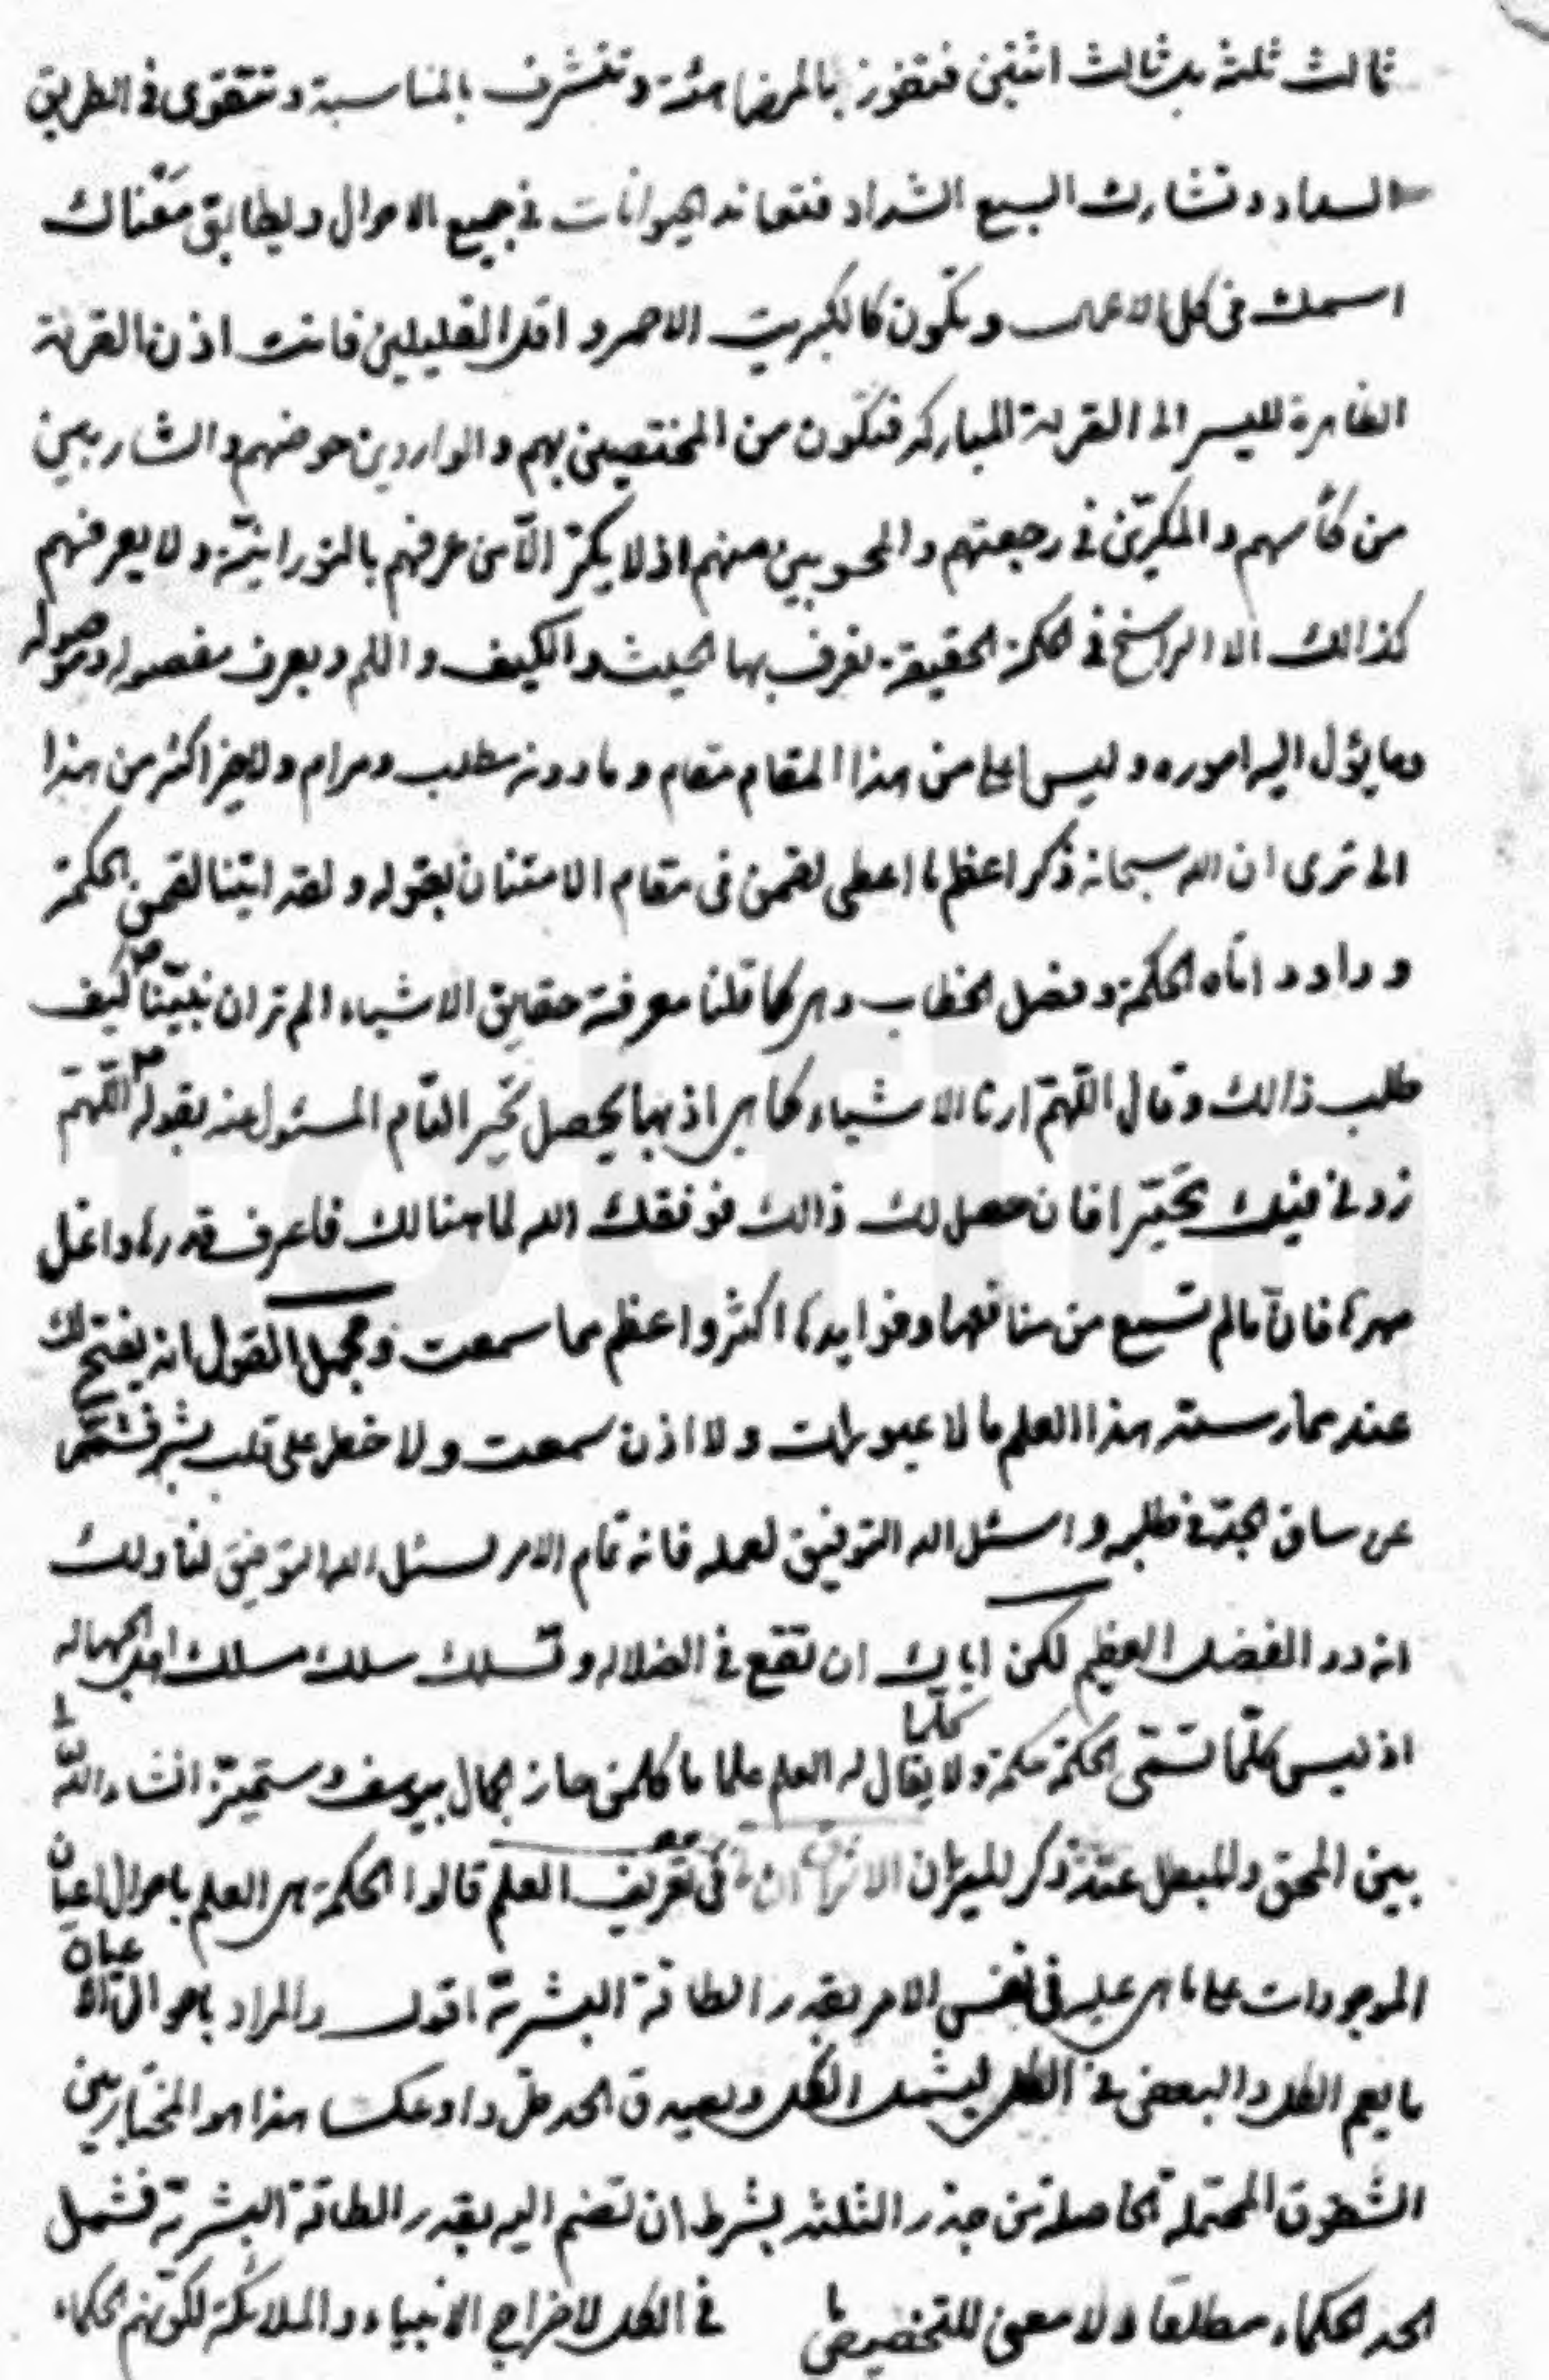 ثالث ثلثة بل ثالث اثنين فتفوز بالمرضا وتتشرف بالمناسبة وتتقوى في الطريق
السداد وتشارك السبع الشداد فتعاند الحيوانات في جميع الاحوال ويطابق معناك
اسمك في كل الاعمال وتكون كالكبريت الاحمر واقل القليلين فانت اذن القرية
الظاهرة لليسر الى القرية المباركه فتكون من المختصين بهم والواردين حوضهم والشاربين
من كأسهم والمكرين في رجعتهم والمحسوبين منهم اذ لا يكر الا من عرفهم بالنورانية ولا يعرفهم
كذالك الا الراسخ في الحكمة الحقيقة يعرف بها الحيث والكيف واللم ويعرف مفصوله وموصوله
وما يؤل اليه اموره وليس اعلى من هذا المقام مقام وما دونه مطلب ومرام ولا فخر اكثر من هذا
الى ترى ان الله سبحانه ذكر اعظم ما اعطى لقمن في مقام الامتنان بقوله ولقد اتينا لقمن الحكمة
وداود اتاه الحكمة وفصل الخطاب وهي كما قلنا معرفة حقايق الاشياء الم تر ان نبيّنا ص كيف
طلب ذالك وقال اللهم ارنا الاشياء كما هي اذ بها يحصل تحير التام المسئول عنه بقوله ص اللهم
زدني فيك تحيّرا فان حصل لك ذالك فوفقك الله لما هنالك فاعرف قدرها واغل
مهرها فان ما لم تسمع من منافعها وفوايدها اكثر واعظم مما سمعت ومجمل القول انه يفتح لك
عند ممارسته هذا العلم ما لا عين رات ولا اذن سمعت ولا خطر على قلب بشر فشمّر
عن ساق الجدّ في طلبه واسئل الله التوفيق لعمله فانه تمام الامر نسئل الله التوفيق لنا ولك
انه ذو الفضل العظيم لكن اياك ان تقع في الضلاله وتسلك سلك مسلك اهل الجهاله
اذ ليس كلّما تسمّى الحكمة حكمة ولا كلما يقال له العلم علما ما كلمن حاز الجمال بيوسف وستميّز انشاء الله
بين المحق والمبطل عند ذكر الميزان في تعريف العلم قالوا الحكمة هي العلم باحوال اعيان
الموجودات على ما هي عليه في نفس الامر بقدر الطاقة البشرية اقول والمراد باحوال الاعيان
ما يعم الكل والبعض في الكل ليشمل الكل ويصدق الحد طردا وعكسا هذا هو المختار بين
الشقوق المحتملة الحاصلة من جذر الثلثه بشرط ان تضم اليه بقدر الطاقة البشرية فشمل
الحد الحكماء مطلقا ولا معنى للتخصيص في الكل لاخراج الانبياء والملائكة لكونهم الحكماء